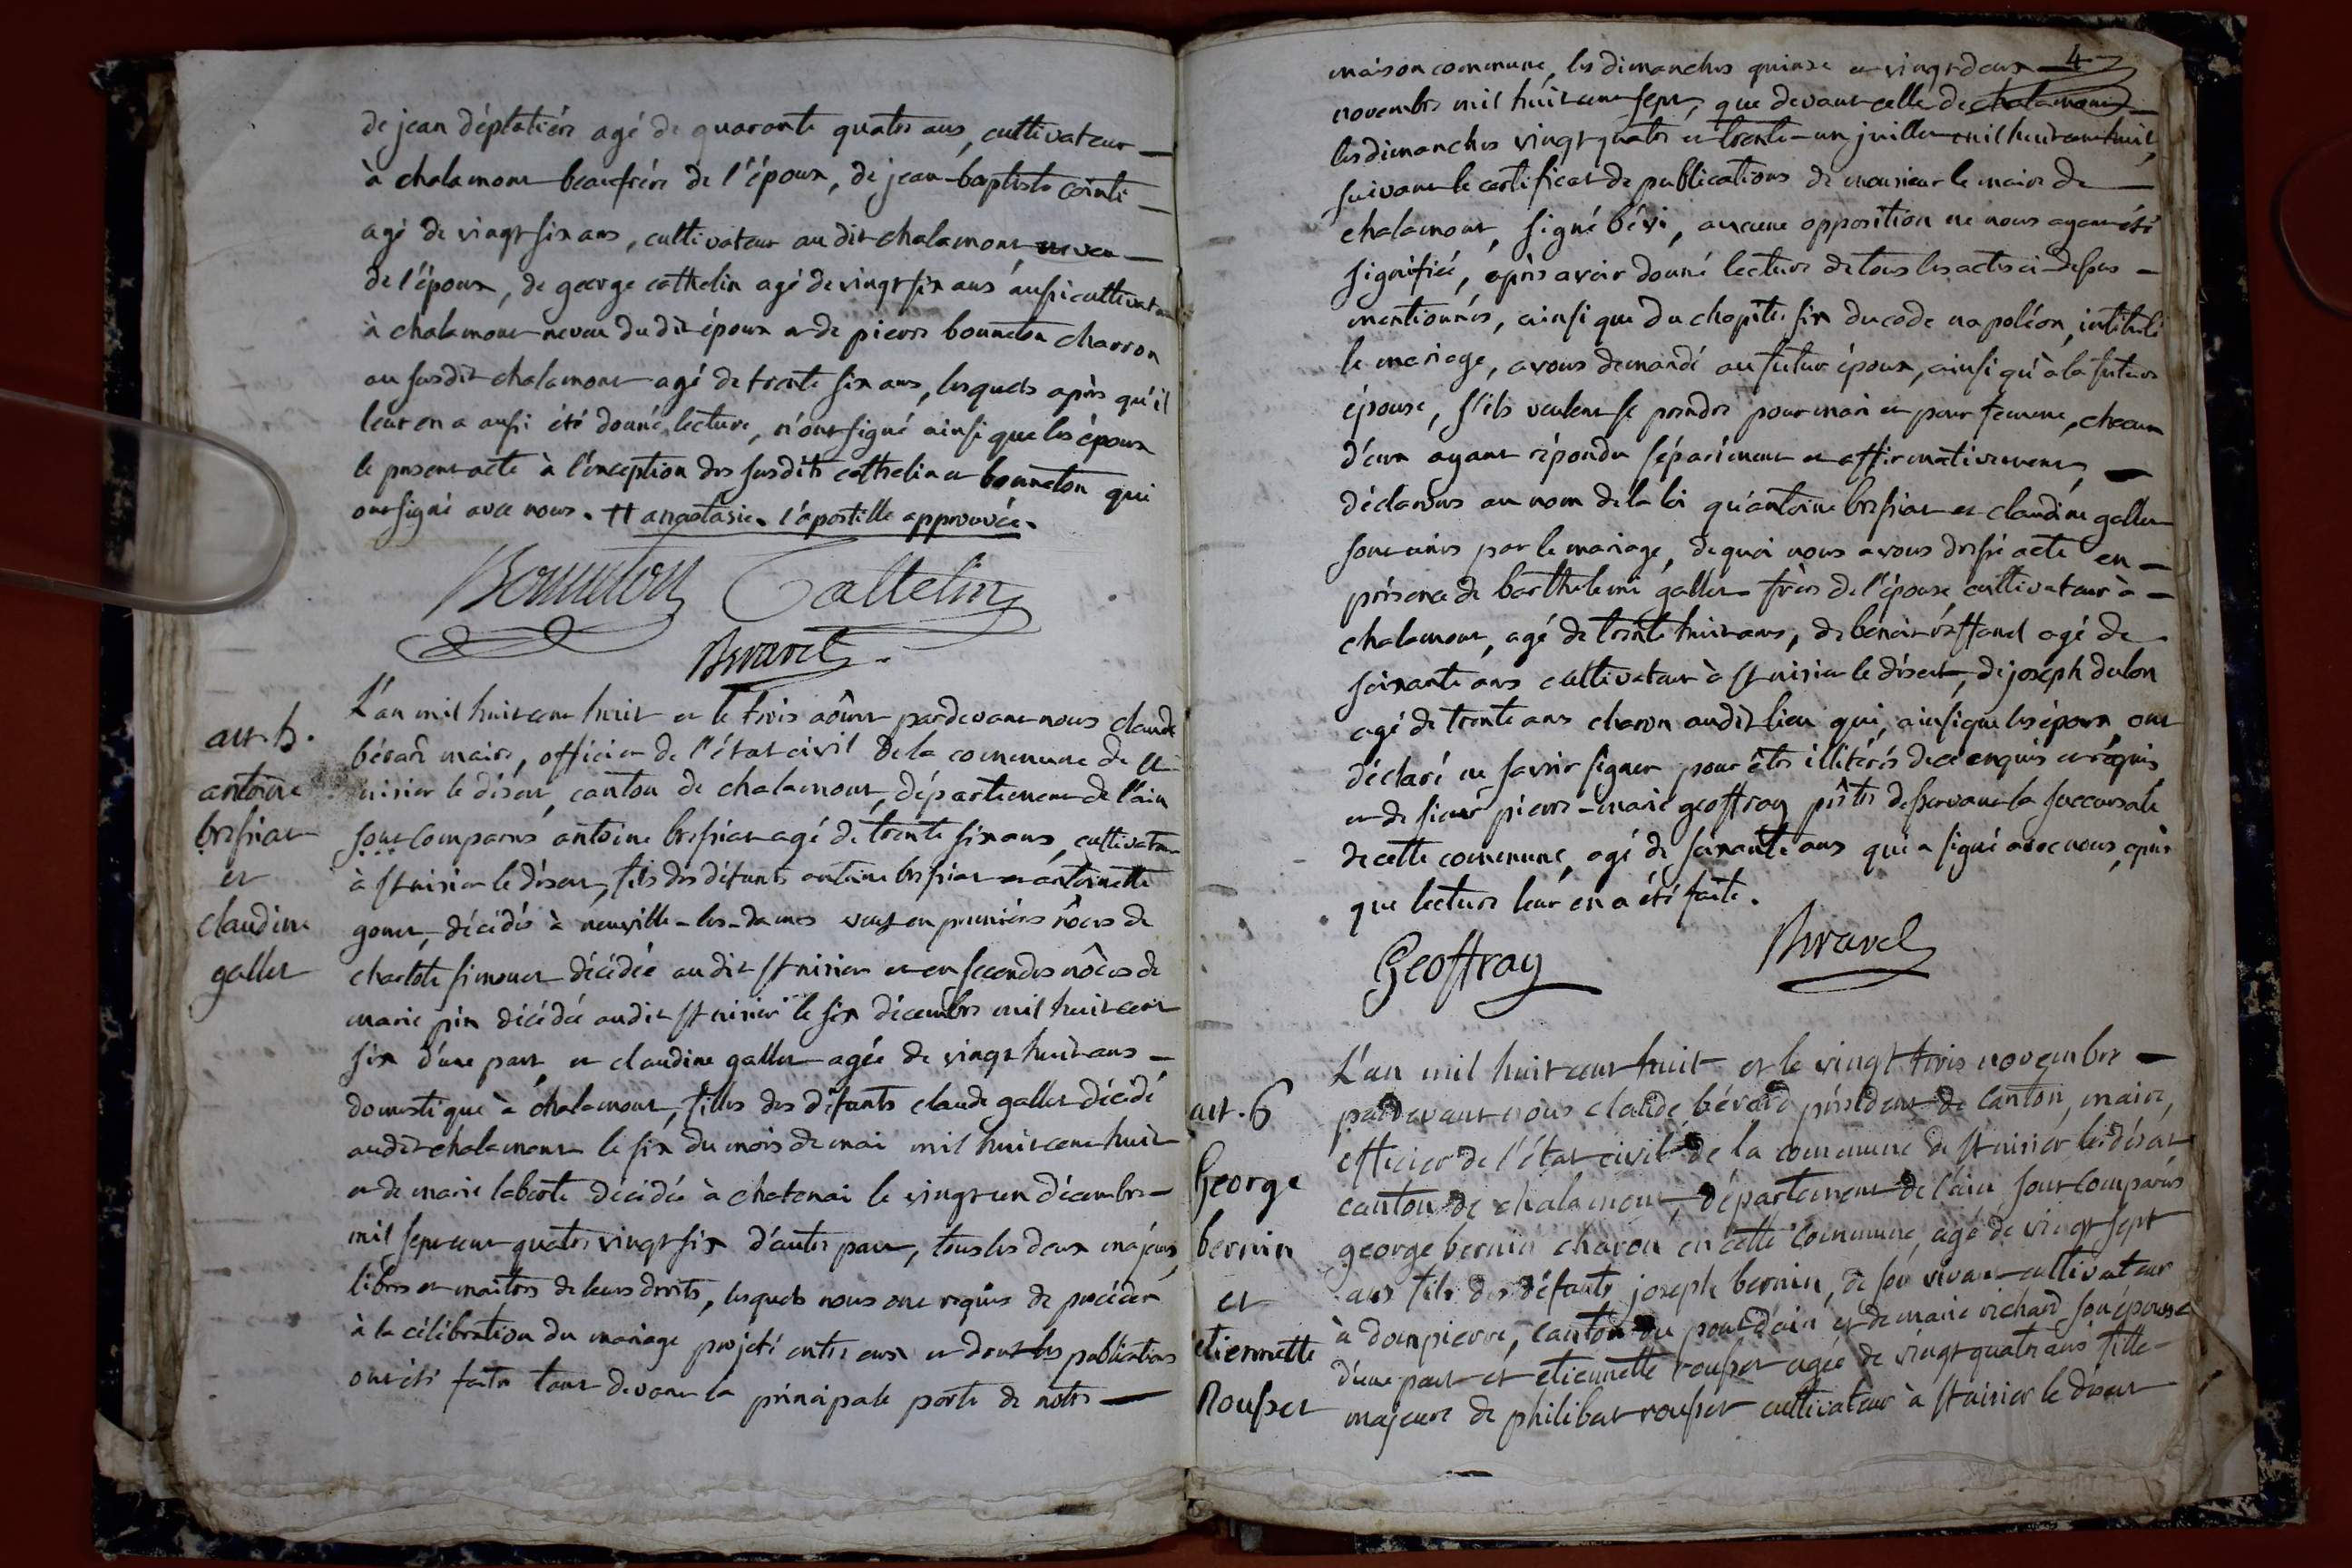 de jean déplatière agé de quarante quatre ans, cultivateur
à chalamont beaufrère de l'époux, de jean-baptiste
agé de vingt six ans, cultivateur au dit chalamont neveu
de l'époux, de george cathelin agé de vingt six ans aussi cultivateur
à chalamont neveu du dit époux et de pierre bonneton charron
au susdit chalamont agé de trente six ans, lesquels après qu'il
leur en a aussi été donné lecture, n'ont signé ainsi que les époux
le present acte à l'exception des susdits cathelin et bonneton qui
ont signé avec nous. tt anastasie. l'apostille approuvée.
Bonneton Cattelin
art. 5.
antoine
bressiat
et
claudine
gallet
L'an mil huit cent huit et le trois aôut pardevant nous claude
bérard maire, officier de l'état civil de la commune de st
nisier le désert, canton de chalamont, département de l'ain
sont comparus antoine bressiat agé de trente six ans, cultivateur
à st nisier le désert, fils des défunts antoine bressiat et antoinette
gonet, décédés à neuville-les-dames veuf en premières nôces de
charlote simonet décédée au dit st nisier et en secondes nôces de
marie pin décédée au dit st nisier le six décembre mil huit cent
six d'une part, et claudine gallet agée de vingt huit ans
domestique à chalamont, filles des défunts claude gallet décédé
au dit chalamont le six du mois de mai mil huit cent huit
et de marie laberte décédée à chatenai le vingt un décembre
mil sept cent quatre vingt six d'autre part, tous les deux majeurs,
libres et maîtres de leurs droits, lesquels nous ont requis de procéder
à la célébration du mariage projeté entre eux et dont les publications
ont été faites tant devant la principale porte de notre
4
maison commune, les dimanches quinze et vingt deux
novembre mil huit cent sept, que devant celle de chalamont
les dimanches vingt quatre et trente-un juillet mil huit cent huit,
suivant le certificat de publications de monsieur le maire de
chalamont, signé bévi, aucune opposition ne nous ayant été
signifiée, après avoir donné lecture de tous les actes ci-dessus
mentionnés, ainsi que du chapitre six du code napoléon, intitulé
le mariage, avons demandé au futur époux, ainsi qu'à la future
épouse, s'ils veulent se prendre pour mari et pour femme, chacun
d'eux ayant répondu séparément et affirmativement,
déclarons au nom de la loi qu'antoine bressiat et claudine gallet
sont unis par le mariage, de quoi nous avons dressé acte en
présence de barthelemi gallet frère de l'épouse cultivateur à
chalamont, agé de trente huit ans, de benoit agé de
soixante ans cultivateur à st nisier le désert, de joseph dulon
agé de trente ans charon audit lieu qui, ainsi que les époux, ont
déclaré ne savoir signer pour être illitérés de ce enquis et requis
et de sieur pierre-marie geoffray prêtre desservant la succursale
de cette commune, agé de soixante ans qui a signé avec nous, après
que lecture leur en a été faite.
Geoffray
art. 6
George
bernin
et
etiennette
Rousset
L'an mil huit cent huit et le vingt trois novembre
pardevant nous claude bérard président de canton, maire,
officier de l'état civil de la commune de st nisier le désert
canton de chalamont, département de l'ain sont comparus
george bernin charon en cette commune, agé de vingt sept
ans fils des défunts joseph bernin, de son vivant cultivateur
à dompierre, canton du pont d'ain et de marie richard son épouse
d'une part et etiennette rousset agée de vingt quatre ans fille
majeure de philibert rousset cultivateur à st nisier le désert